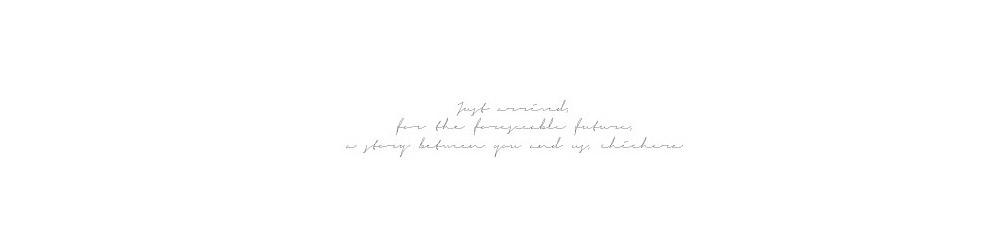 Just arrived,
for the foreseeable future,
a story between you and us, chichera